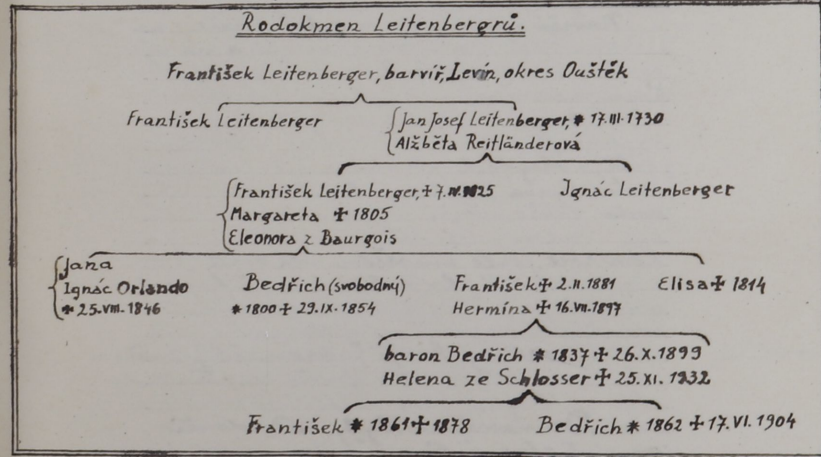 Rodokmen Leitenbergrů.
František Leitenberger, barvíř, Levín, okres Ouštěk
František Leitenberger
Jan Josef Leitenberger, * 17.III.1730
Alžběta Reitländerová
František Leitenberger, + 7.IV.1825
Margareta + 1805
Eleonora z Baurgois
Ignác Leitenberger
Jana
Ignác Orlando
+ 25.VIII.1846
Bedřich (svobodný)
* 1800 + 29.IX.1854
František + 2.II.1881
Hermína + 16.VII.1897
Elisa + 1814
baron Bedřich * 1837 + 26.X.1899
Helena ze Schlosser + 25.XI.1932
František * 1861 + 1878
Bedřich * 1862 + 17.VI.1904